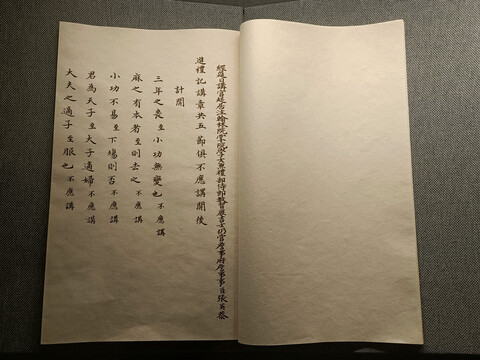 經筵日講官起居注翰林院掌院學士兼禮部侍郎教習庶吉士仍管詹事府詹事事臣張英恭
進禮記講章共五節俱不應講開後
計開
三年之喪至小功無變也不應講
麻之有本者至則去之不應講
小功不易至下殤則否不應講
君為天子至大子適婦不應講
大夫之適子至服也不應講